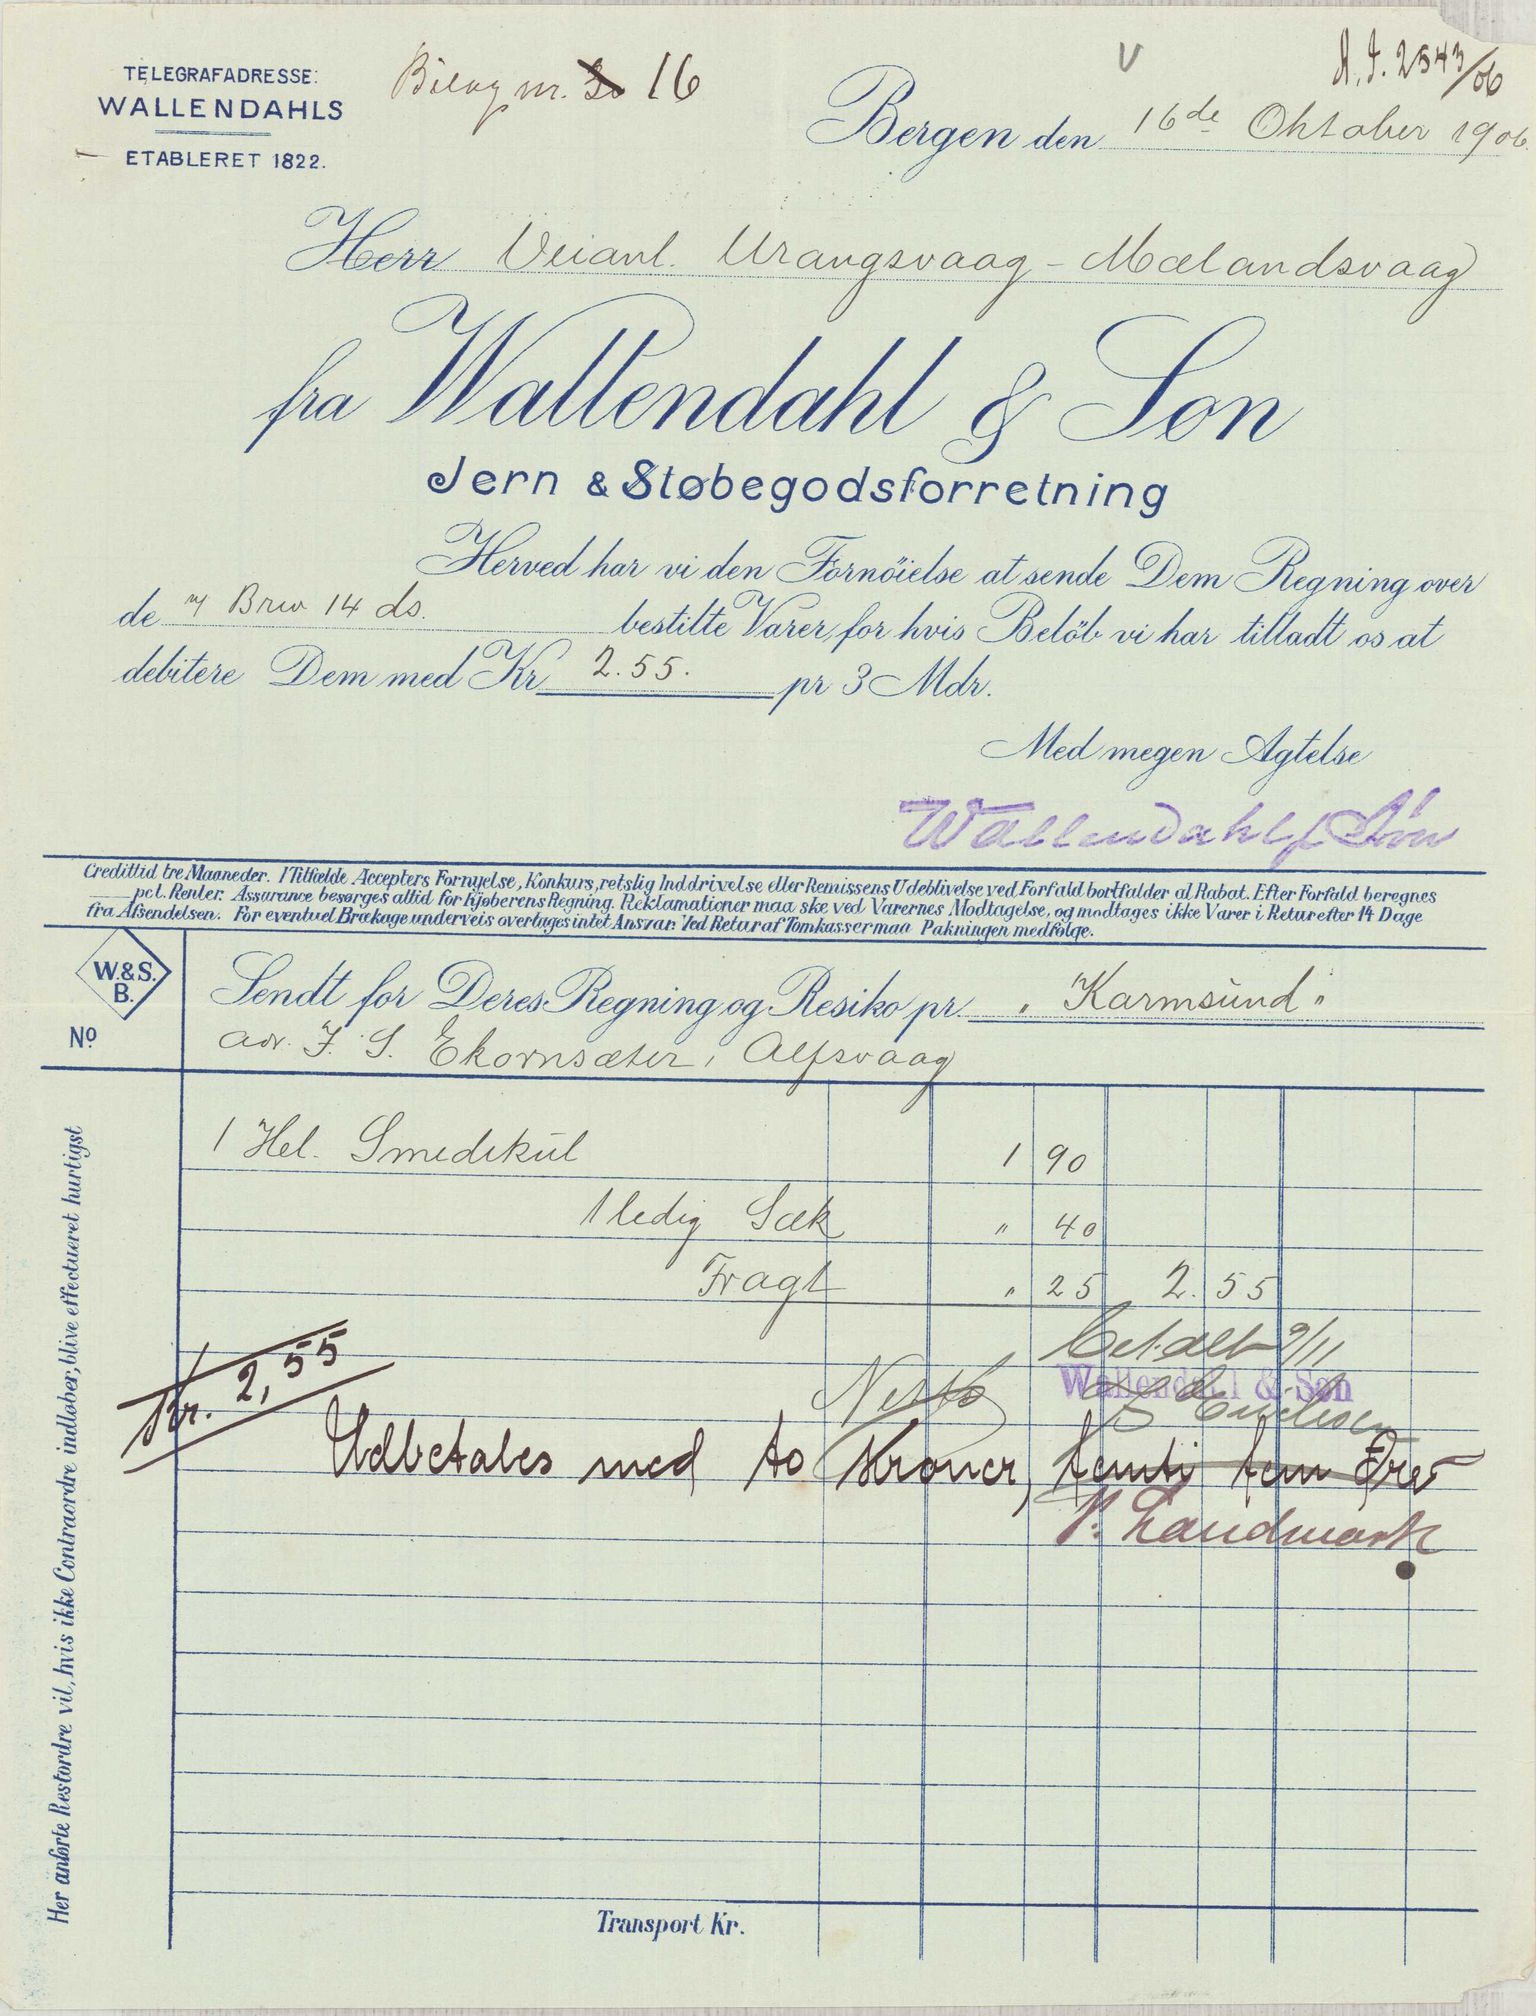 TELEGRAFADRESSE:
WALLENDAHLS
ETABLERET 1822.
Bilag nr. 16
A. J. 2543/06
Bergen den 16de Oktober 1906.
Herr Veianl. Urangsvaag - Mælandsvaag
fra Wallendahl & Søn
Jern & Støbegodsforretning
Herved har vi den Fornöielse at sende Dem Regning over
de Brev 14 ds. bestilte Varer, for hvis Belöb vi har tilladt os at
debitere Dem med Kr 2.55. pr 3 Mdr.
Med megen Agtelse
Wallendahl & Søn
Credittid tre Maaneder. I Tilfælde Accepters Fornyelse, Konkurs, retslig Inddrivelse eller Remissens Udeblivelse ved Forfald bortfalder al Rabat. Efter Forfald beregnes
pct. Renter. Assurance besørges altid for Kjøberens Regning. Reklamationer maa ske ved Varernes Modtagelse, og modtages ikke Varer i Retur efter 14 Dage
fra Afsendelsen. For eventuel Brækage underveis overtages intet Ansvar. Ved Retur af Tomkasser maa Pakningen medfølge.
W. & S.
B.
No
Sendt for Deres Regning og Resiko pr. "Karmsund"
adr. J. S. Ekornsæter, Alfsvaag
1 Hel. Smedekul 1 90
1 ledig Sæk " 40
Fragt " 25 2.55
Betalt 9/11
Netto
Wallendahl & Søn
Kr. 2,55
Udbetales med to Kroner, femti fem Øre
P. Landmark
Transport Kr.
Her anførte Restordre vil, hvis ikke Contraordre indløber, blive effectueret hurtigst